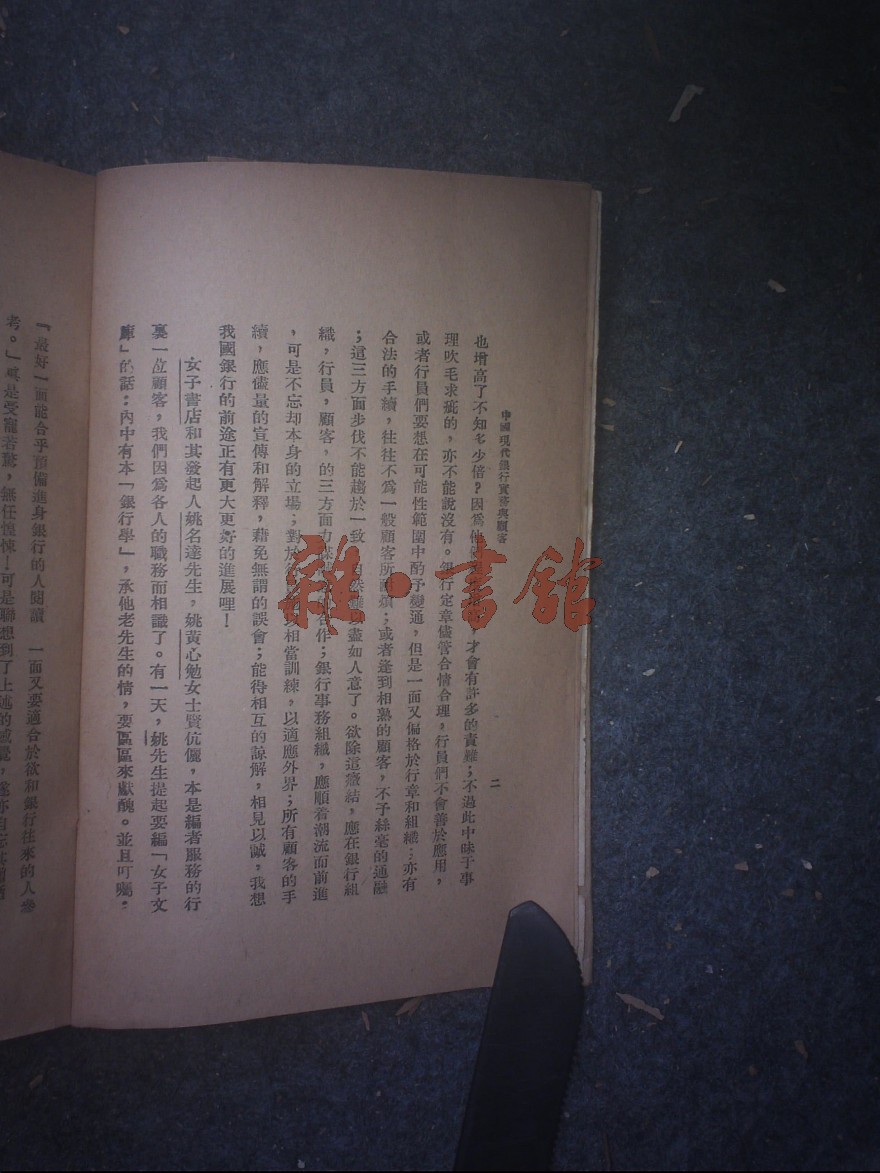 中國現代銀行實務與顧客
二
也增高了不知多少倍?因爲他 才會有許多的責難;不過此中昧于事
理吹毛求疵的,亦不能說沒有。銀行定章儘管合情合理,行員們不會善於應用,
或者行員們要想在可能性範圍中酌予變通,但是一面又偏格於行章和組織;亦有
合法的手續,往往不爲一般顧客所 煩;或者逢到相熟的顧客,不予絲毫的通融
;這三方面步伐不能趨於一致, 盡如人意了。欲除這癥結,應在銀行組
織,行員,顧客,的三方面力 合作;銀行事務組織,應順着潮流而前進
,可是不忘却本身的立場;對於 相當訓練,以適應外界;所有顧客的手
續,應儘量的宣傳和解釋,藉免無謂的誤會;能待相互的諒解,相見以誠,我想
我國銀行的前途正有更大更好的進展哩!
女子書店和其發起人姚名達先生,姚黃心勉女士賢伉儷,本是編者服務的行
裏一位顧客,我們因爲各人的職務而相識了。有一天,姚先生提起要編「女子文
庫」的話:內中有本「銀行學」,承他老先生的情,要區區來獻醜。並且叮囑:
『最好一面能合乎預備進身銀行的人閱讀 一面又要適合於欲和銀行往來的人參
考。』眞是受寵若驚,無任惶悚!可是聯想到了上述的感覺,
雜·書館